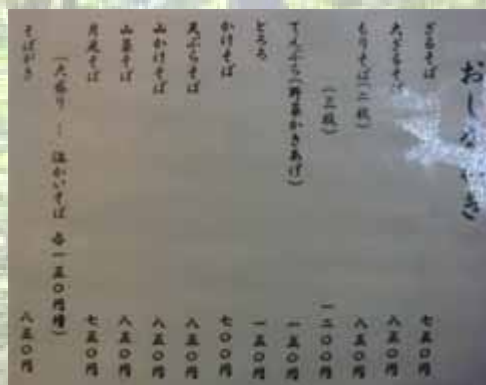 おしながき
ざるそば 七五〇円
大ざるそば 八五〇円
もりそば(二枚) 八五〇円
(三枚) 一二〇〇円
てんぷら(野菜かきあげ) 一五〇円
とろろ 一五〇円
かけそば 七〇〇円
天ぷらそば 八五〇円
山かけそば 八五〇円
山菜そば 八五〇円
月見そば 七五〇円
(大盛り … 温かいそば 各一五〇円増)
そばがき 八五〇円